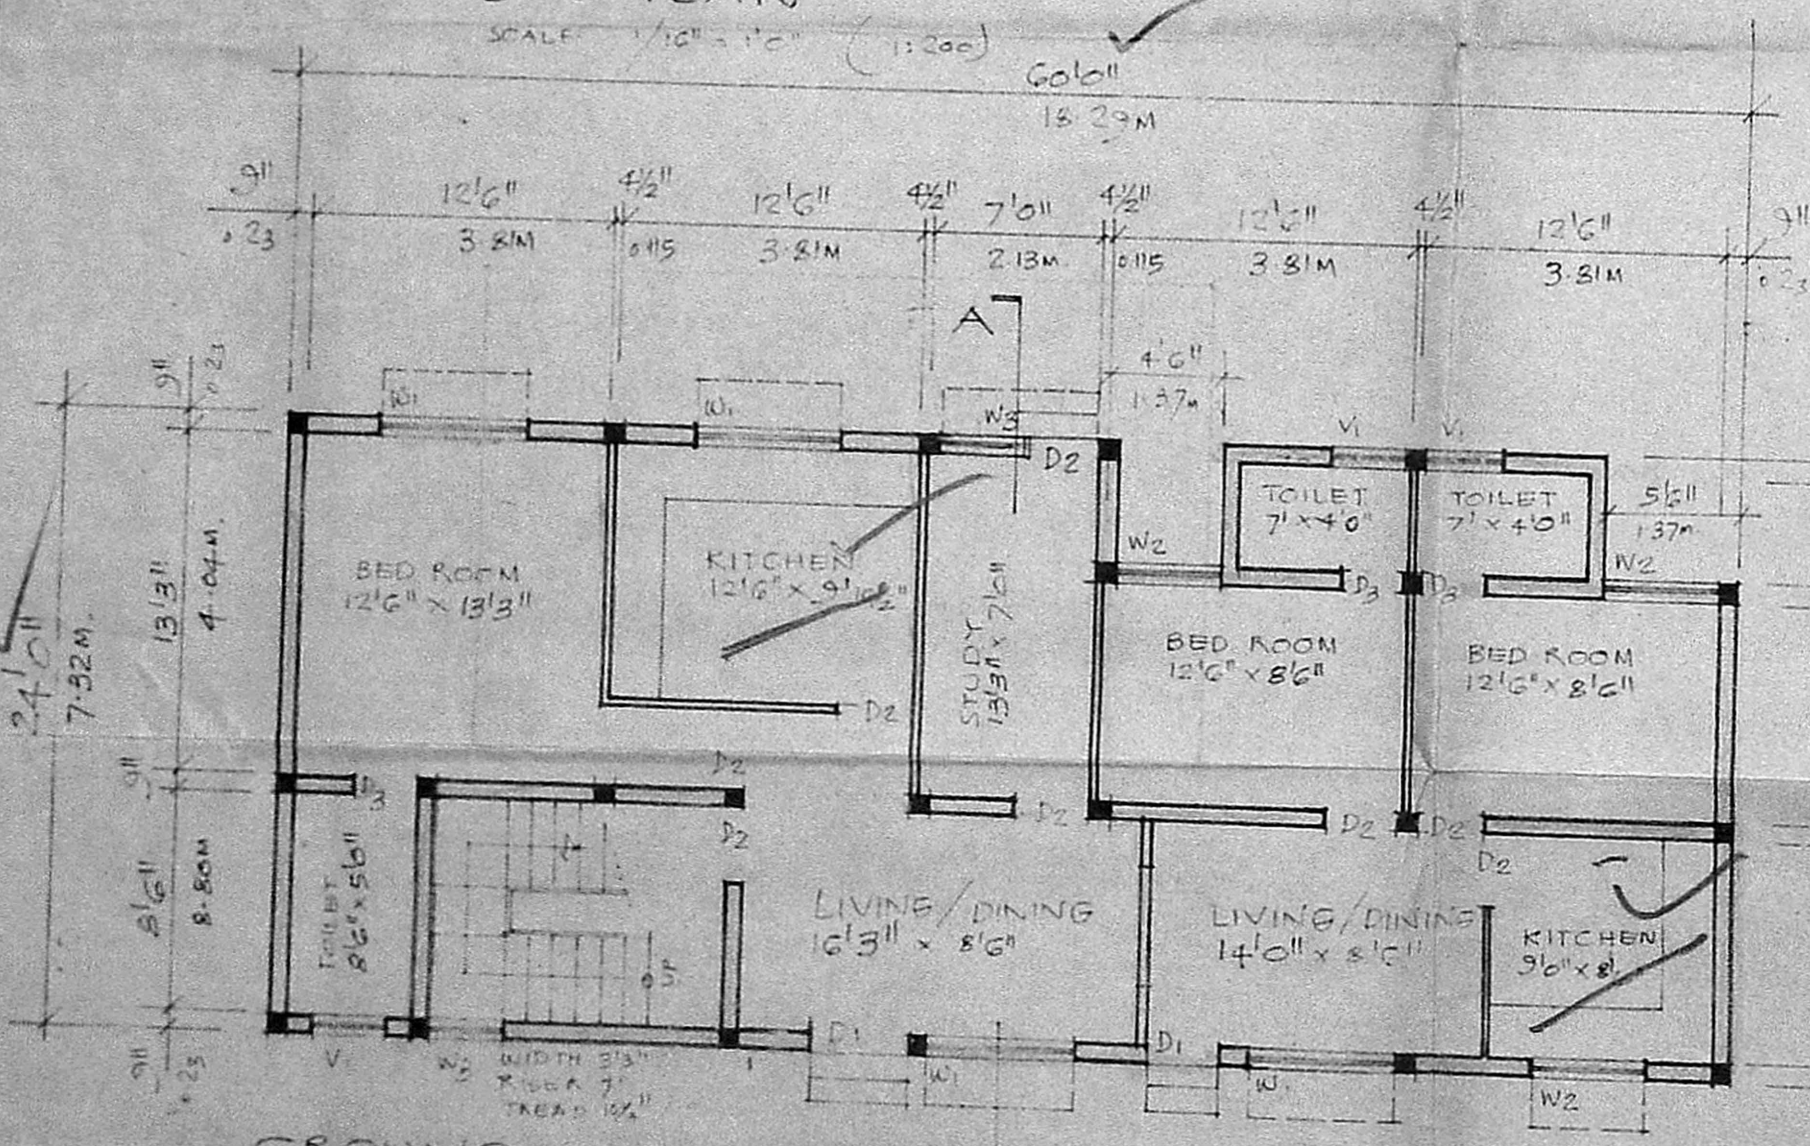 SCALE 1/16" = 1'0" (1:200)
60'0"
18.29M
9" 12'6" 4½" 12'6" 4½" 7'0" 4½" 12'6" 4½" 12'6" 9"
.23 3.81M 0.115 3.81M 2.13M 0.115 3.81M 3.81M 0.23
A
4'6"
1.37M
9"
.23
W1 W1 W3 D2 V1 V1
TOILET
7' x 4'0"
TOILET
7' x 4'0"
5'6"
1.37M
W2 W2
D3 D3
24'0"
7.32M.
13'3"
4.04M.
BED ROOM
12'6" x 13'3"
KITCHEN
12'6" x 9'10½"
STUDY
13'3" x 7'0"
BED ROOM
12'6" x 8'6"
BED ROOM
12'6" x 8'6"
D2
9"
D2
3
D2 D2 D2 D2 D2
8'6"
8.80M
TOILET
8'6" x 5'0"
LIVING/DINING
16'3" x 8'6"
LIVING/DINING
14'0" x 8'6"
KITCHEN
9'0" x 8'
9"
.23
V1 D1 W1 D1 W1 W2
WIDTH 3'3"
RISER 7"
TREAD 10½"